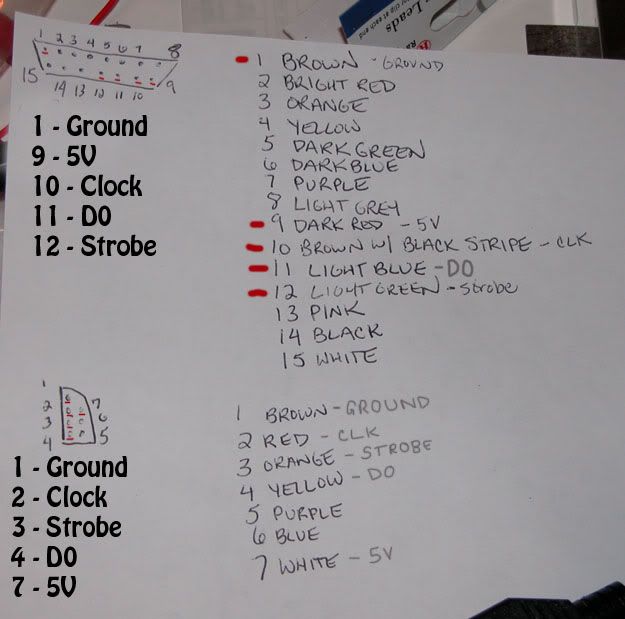 Leads
1 2 3 4 5 6 7 8
15
14 13 12 11 10 9
1 - Ground
9 - 5V
10 - Clock
11 - D0
12 - Strobe
1 BROWN - GROUND
2 BRIGHT RED
3 ORANGE
4 YELLOW
5 DARK GREEN
6 DARK BLUE
7 PURPLE
8 LIGHT GREY
9 DARK RED - 5V
10 BROWN W/ BLACK STRIPE - CLK
11 LIGHT BLUE - DO
12 LIGHT GREEN - Strobe
13 PINK
14 BLACK
15 WHITE
1
2 7
3 6
4 5
1 - Ground
2 - Clock
3 - Strobe
4 - D0
7 - 5V
1 BROWN - GROUND
2 RED - CLK
3 ORANGE - STROBE
4 YELLOW - DO
5 PURPLE
6 BLUE
7 WHITE - 5V